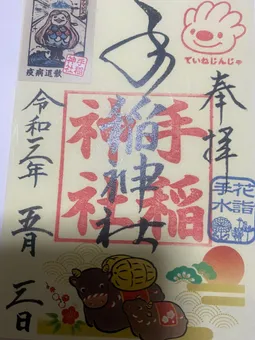 ていねじんじゃ
奉拝
手稲神社
手稲
神社
花詣
手水
令和三年
五月
三日
疫病退散
手稲
神社